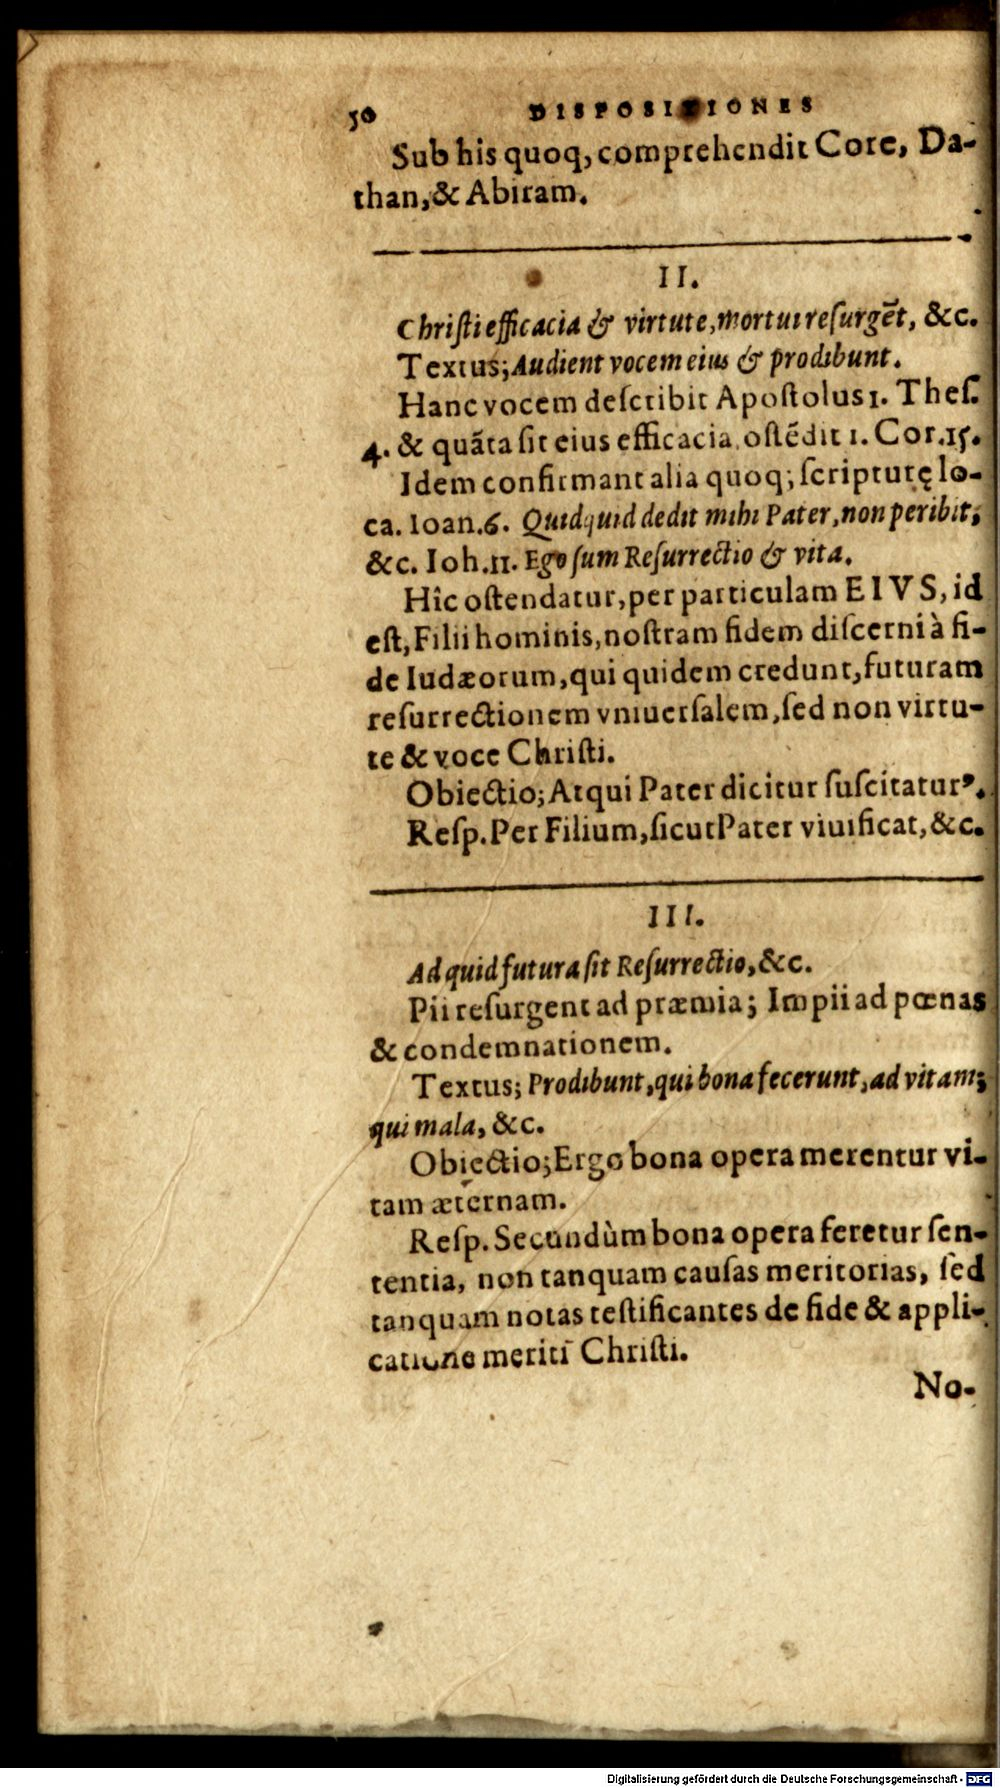 50 DISPOSITIONES
Sub his quoq; comprehendit Core, Da-
than, & Abiram.
II.
Christi efficacia & virtute, mortui resurgẽt, &c.
Textus; Audient vocem eius & prodibunt.
Hanc vocem describit Apostolus 1. Thes.
4. & quãta sit eius efficacia, ostẽdit 1. Cor. 15.
Idem confirmant alia quoq; scripturę lo-
ca. Ioan. 6. Quidquid dedit mihi Pater, non peribit,
&c. Ioh. 11. Ego sum Resurrectio & vita.
Hîc ostendatur, per particulam EIVS, id
est, Filii hominis, nostram fidem discerni à fi-
de Iudæorum, qui quidem credunt, futuram
resurrectionem vniuersalem, sed non virtu-
te & voce Christi.
Obiectio; Atqui Pater dicitur suscitatur⁹.
Resp. Per Filium, sicut Pater viuificat, &c.
III.
Ad quid futura sit Resurrectio, &c.
Pii resurgent ad præmia; Impii ad pœnas
& condemnationem.
Textus; Prodibunt, qui bona fecerunt, ad vitam;
qui mala, &c.
Obiectio; Ergo bona opera merentur vi-
tam æternam.
Resp. Secundùm bona opera feretur sen-
tentia, non tanquam causas meritorias, sed
tanquam notas testificantes de fide & appli-
catione meriti Christi.
No-
Digitalisierung gefördert durch die Deutsche Forschungsgemeinschaft - DFG